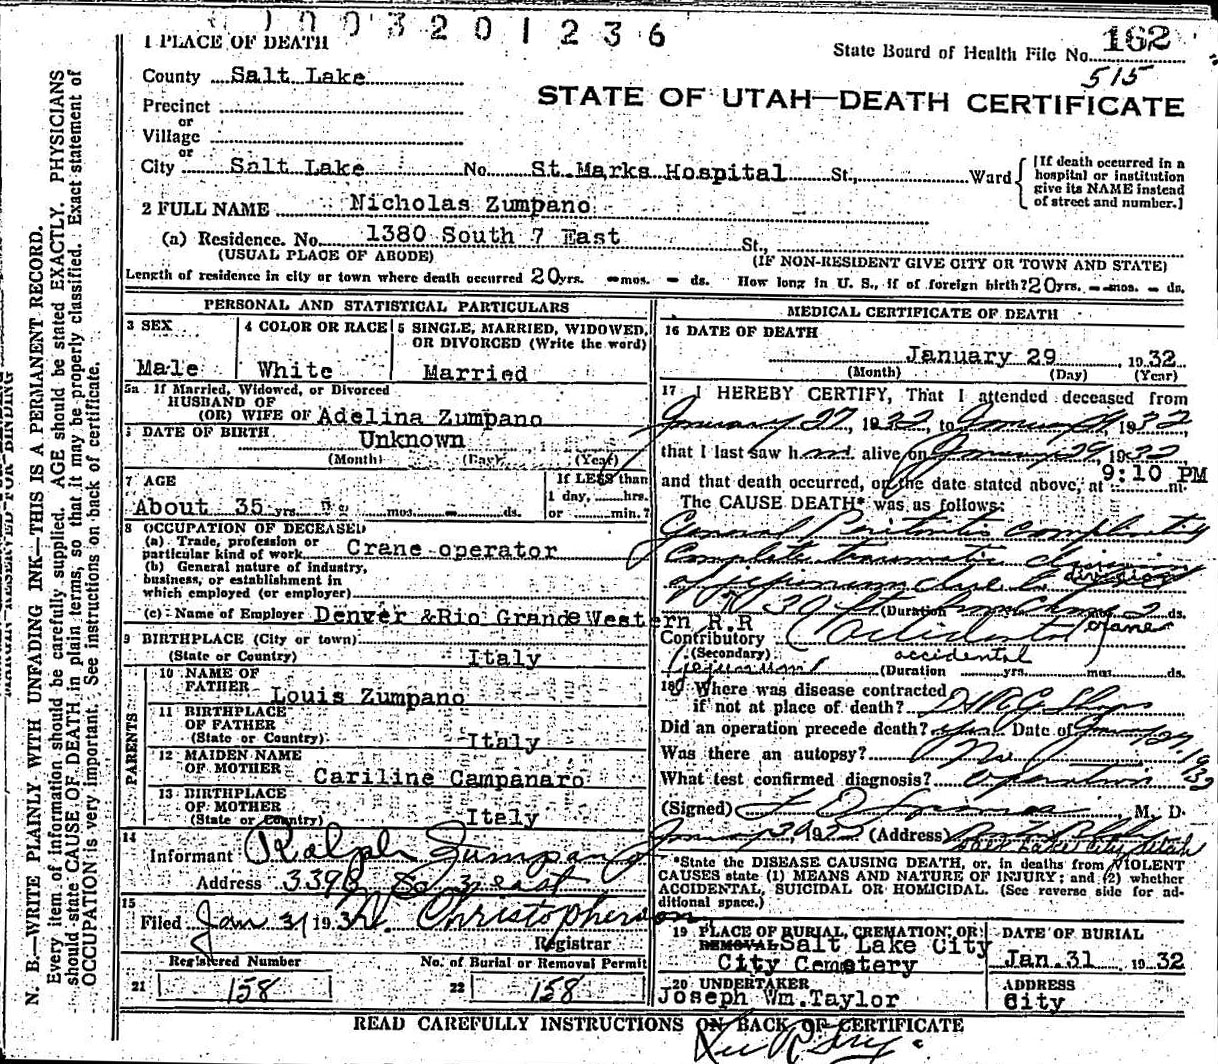 1003201236
1 PLACE OF DEATH
State Board of Health File No. 162
515
County Salt Lake
STATE OF UTAH—DEATH CERTIFICATE
Precinct
or
Village
or
City Salt Lake No. St.Marks Hospital St., Ward
[If death occurred in a
hospital or institution
give its NAME instead
of street and number.]
2 FULL NAME Nicholas Zumpano
(a) Residence. No. 1380 South 7 East St.,
(USUAL PLACE OF ABODE) (IF NON-RESIDENT GIVE CITY OR TOWN AND STATE)
Length of residence in city or town where death occurred 20 yrs. - mos. - ds. How long in U. S., if of foreign birth? 20 yrs. - mos. - ds.
PERSONAL AND STATISTICAL PARTICULARS
3 SEX
Male
4 COLOR OR RACE
White
5 SINGLE, MARRIED, WIDOWED,
OR DIVORCED (Write the word)
Married
5a If Married, Widowed, or Divorced
HUSBAND OF
(OR) WIFE OF Adelina Zumpano
DATE OF BIRTH Unknown
(Month) (Day) (Year)
7 AGE
About 35 yrs. mos. - ds.
If LESS than
1 day, hrs.
or min.?
8 OCCUPATION OF DECEASED
(a) Trade, profession or
particular kind of work Crane operator
(b) General nature of industry,
business, or establishment in
which employed (or employer)
(c) Name of Employer Denver &Rio Grande Western R.R
9 BIRTHPLACE (City or town)
(State or Country) Italy
PARENTS
10 NAME OF
FATHER Louis Zumpano
11 BIRTHPLACE
OF FATHER
(State or Country) Italy
12 MAIDEN NAME
OF MOTHER Cariline Campanaro
13 BIRTHPLACE
OF MOTHER
(State or Country) Italy
14
Informant Ralph Zumpano
Address 3398 So 3 east
15
Filed Jan 31 1932 Christopherson
Registrar
Registered Number
21 158
No. of Burial or Removal Permit
22 158
MEDICAL CERTIFICATE OF DEATH
16 DATE OF DEATH
January 29 1932
(Month) (Day) (Year)
17 I HEREBY CERTIFY, That I attended deceased from
January 27, 1932, to January 29 1932,
that I last saw him alive on January 29, 1932
and that death occurred, on the date stated above, at 9:10 PM m.
The CAUSE DEATH* was as follows:
General Peritonitis complicating
Complete traumatic division
division
of jejunum due to
(Duration mos. 2 ds.
crane
Contributory Accidental
(Secondary) accidental
(jejunum) (Duration yrs. mos. ds.
18 Where was disease contracted
if not at place of death? D&RG Shops
Did an operation precede death? yes Date of January 27, 1932
Was there an autopsy? No
What test confirmed diagnosis? Operation
(Signed) M. D.
1932 (Address) Salt Lake City, Utah
*State the DISEASE CAUSING DEATH, or, in deaths from VIOLENT
CAUSES state (1) MEANS AND NATURE OF INJURY; and (2) whether
ACCIDENTAL, SUICIDAL OR HOMICIDAL. (See reverse side for ad-
ditional space.)
19 PLACE OF BURIAL, CREMATION, OR
REMOVAL Salt Lake City
City Cemetery
DATE OF BURIAL
Jan.31 1932
20 UNDERTAKER
Joseph Wm.Taylor
ADDRESS
City
READ CAREFULLY INSTRUCTIONS ON BACK OF CERTIFICATE
MARGIN RESERVED FOR BINDING
N. B.—WRITE PLAINLY WITH UNFADING INK—THIS IS A PERMANENT RECORD.
Every item of information should be carefully supplied. AGE should be stated EXACTLY. PHYSICIANS
should state CAUSE OF DEATH in plain terms, so that it may be properly classified. Exact statement of
OCCUPATION is very important. See instructions on back of certificate.